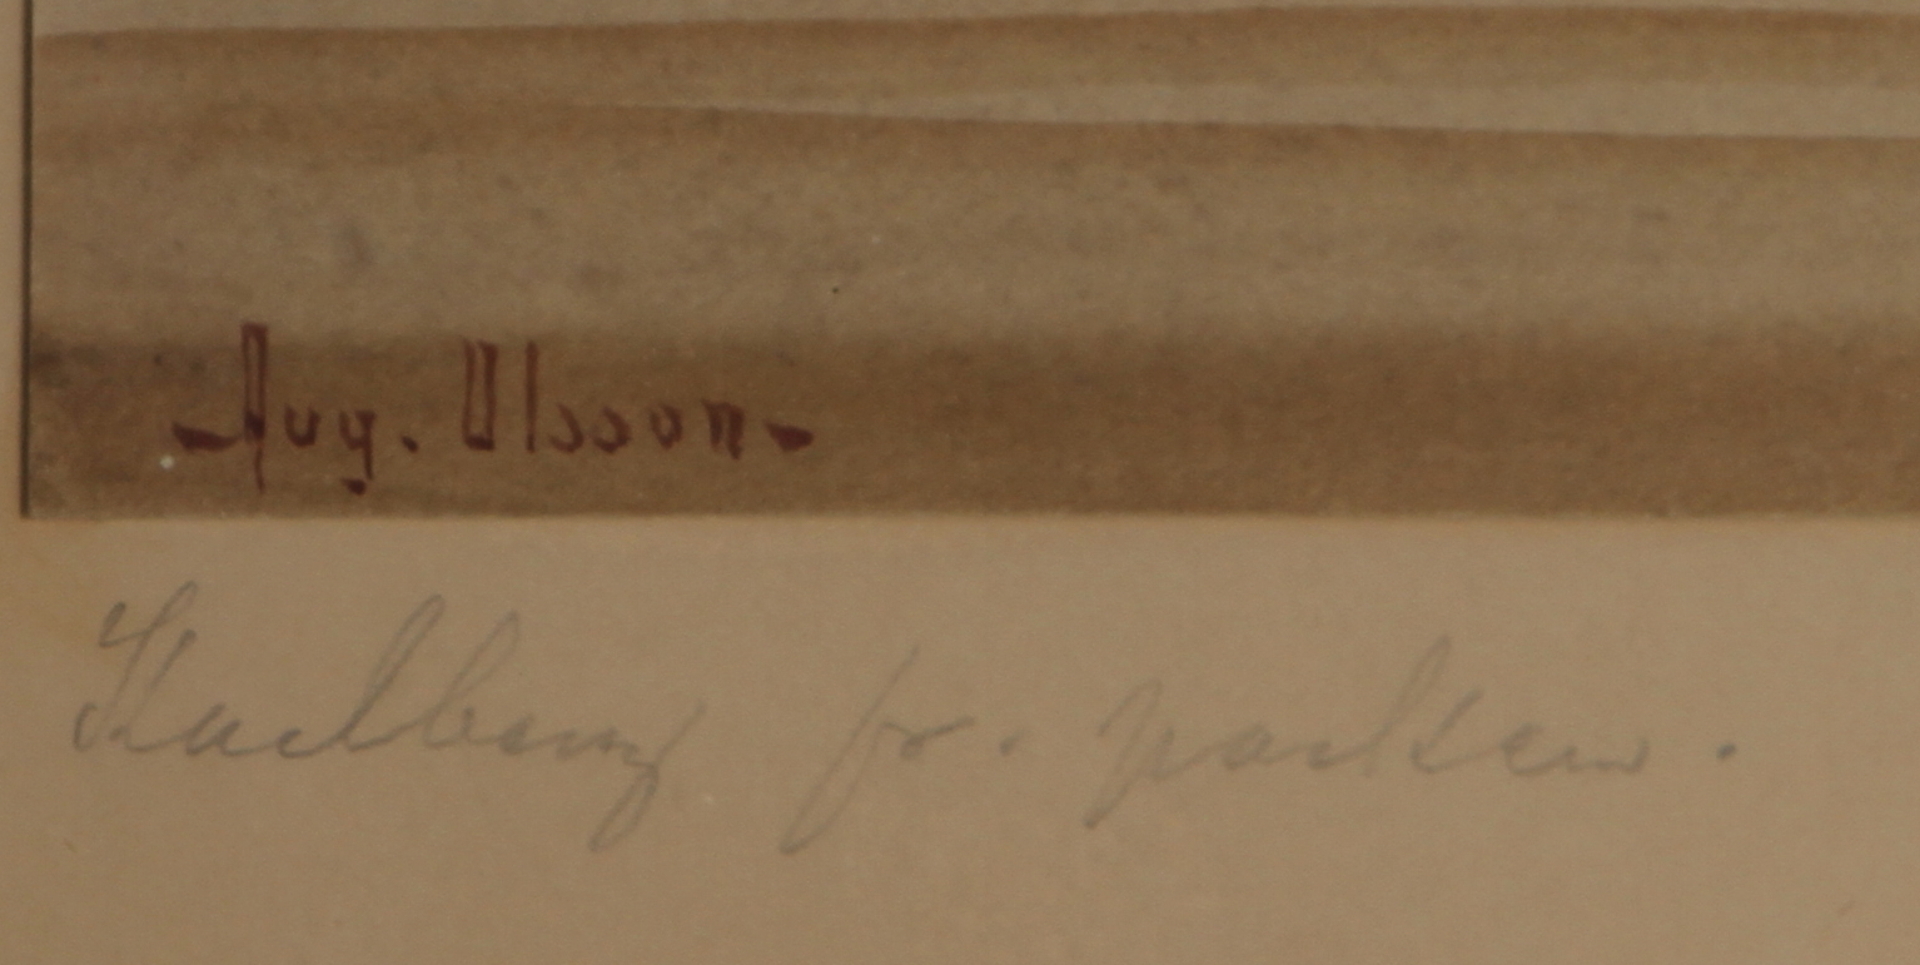 Aug. Olsson
Karlberg fr. parken.